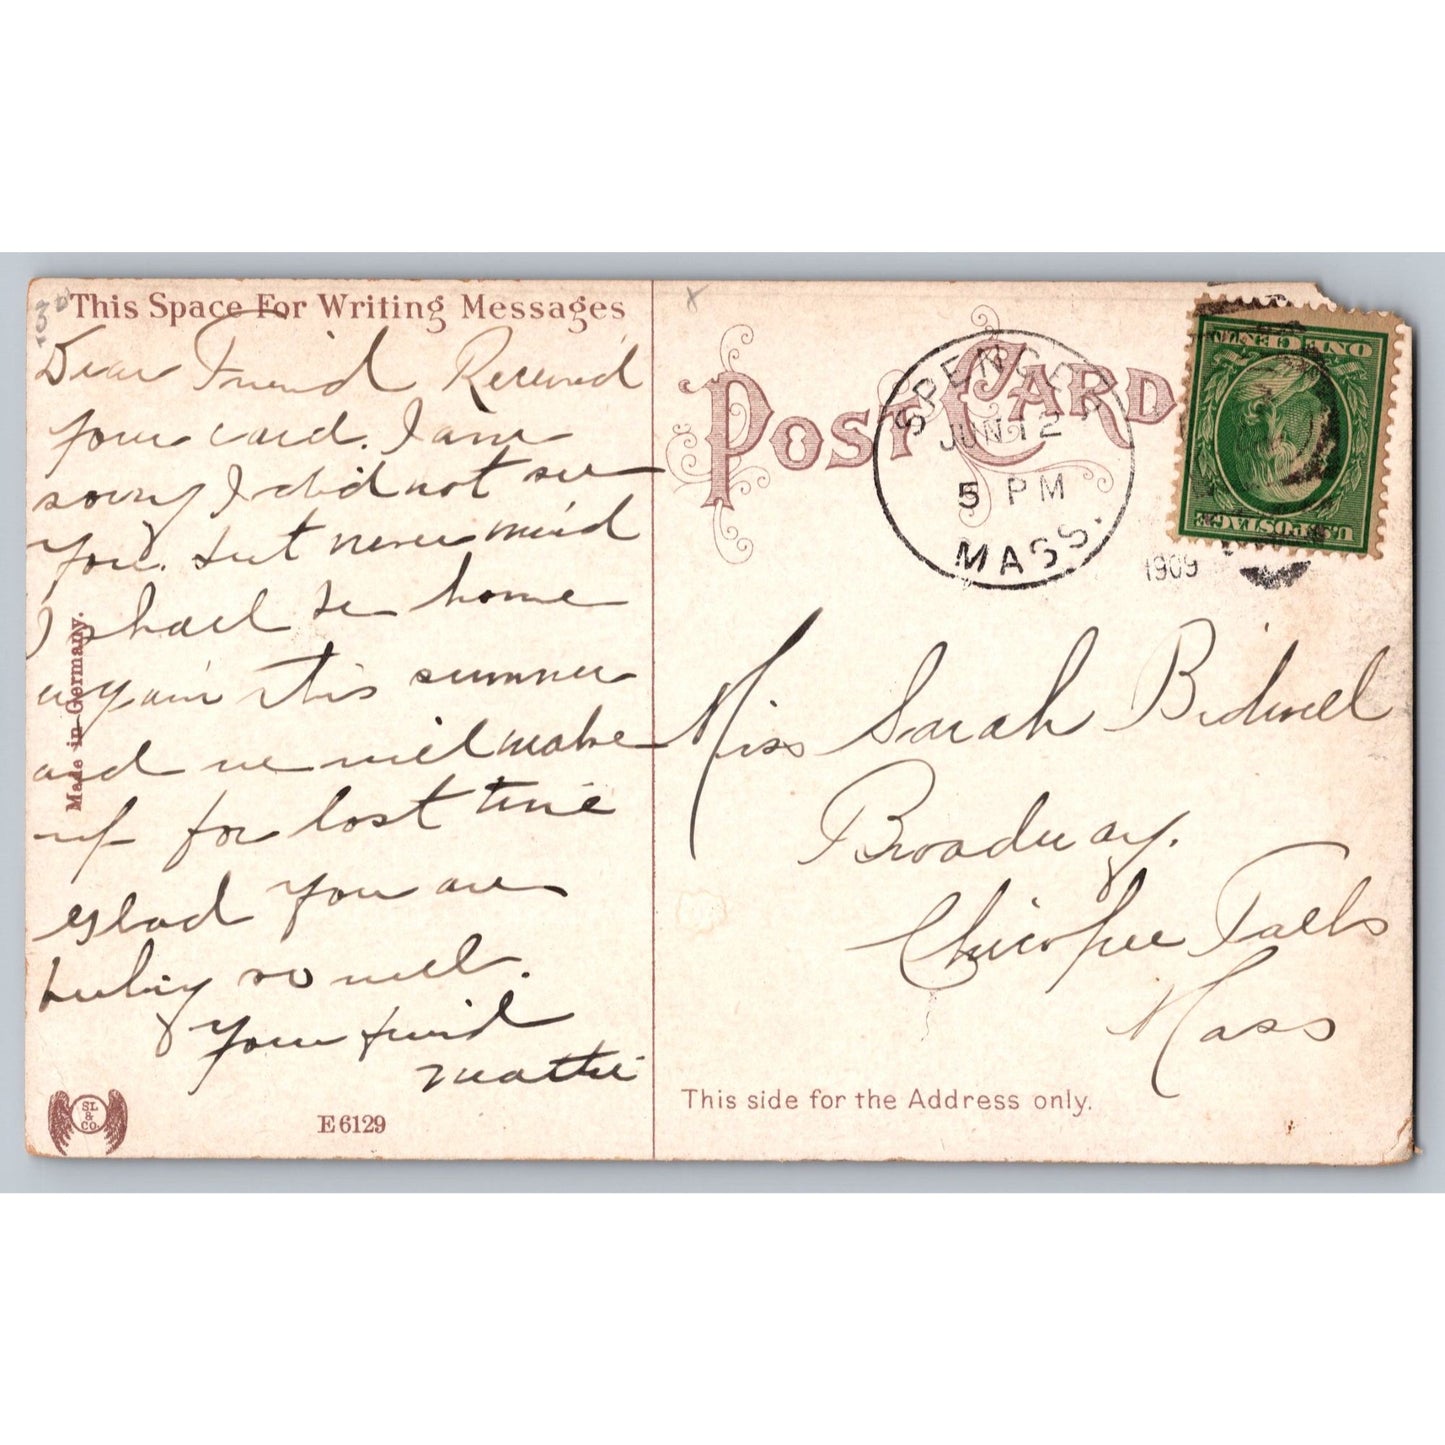 This Space For Writing Messages
Dear Friend Received
your card. I am
sorry I did not see
you. but never mind
I shall be home
again this summer
and we will make
up for lost time
glad you are
feeling so well.
Your friend
Mattie
Made in Germany.
SL
&
CO.
E 6129
POST CARD
SPENCER
JUN 12
5 PM
MASS.
1909
ONE CENT
U.S. POSTAGE
Miss Sarah Bidwell
Broadway.
Chicopee Falls
Mass
This side for the Address only.